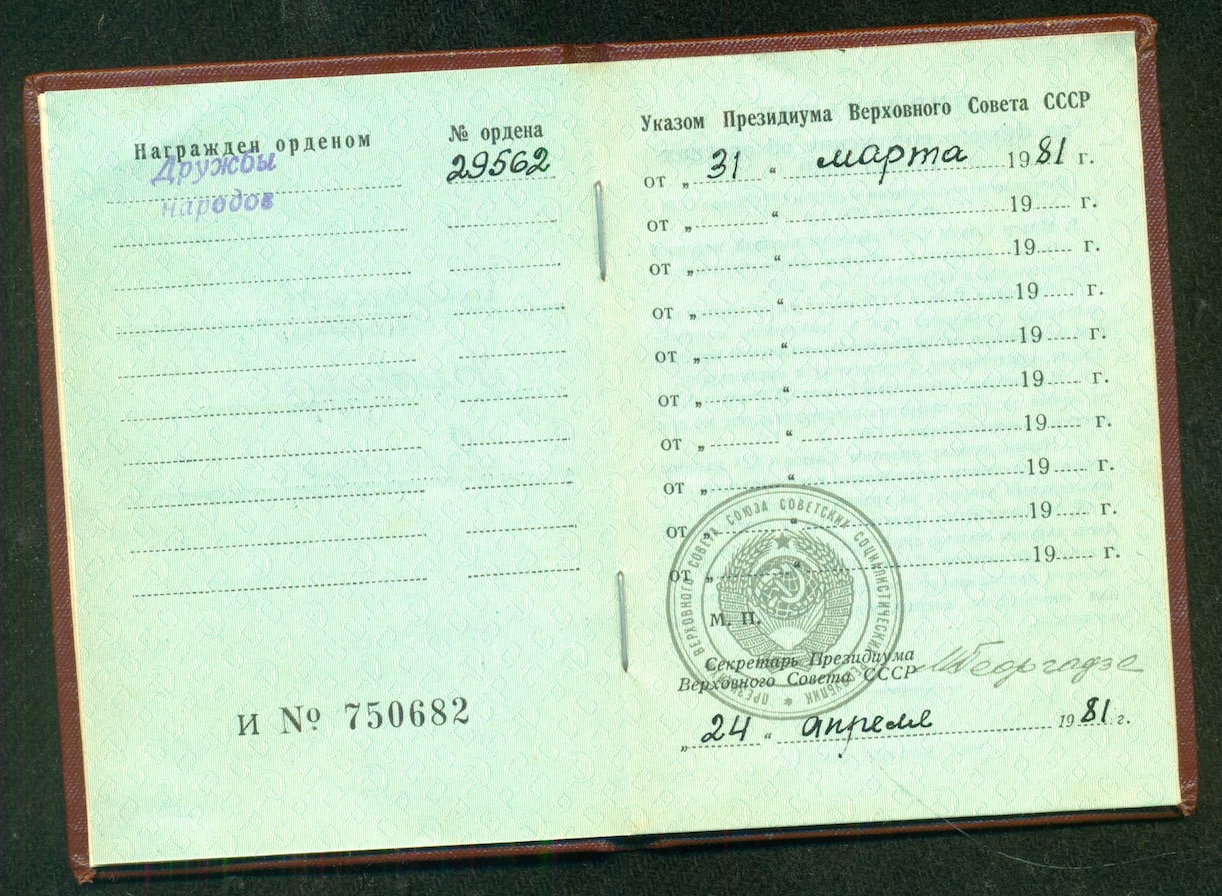 Награжден орденом
№ ордена
Дружбы
народов
29562
И № 750682
Указом Президиума Верховного Совета СССР
от „ 31 “ марта 1981 г.
от „ “ 19 г.
от „ “ 19 г.
от „ “ 19 г.
от „ “ 19 г.
от „ “ 19 г.
от „ “ 19 г.
от „ “ 19 г.
от „ “ 19 г.
от „ “ 19 г.
ПРЕЗИДИУМ ВЕРХОВНОГО СОВЕТА СОЮЗА СОВЕТСКИХ СОЦИАЛИСТИЧЕСКИХ РЕСПУБЛИК
М. П.
Секретарь Президиума
Верховного Совета СССР
МГеоргадзе
„ 24 “ апреля 1981 г.